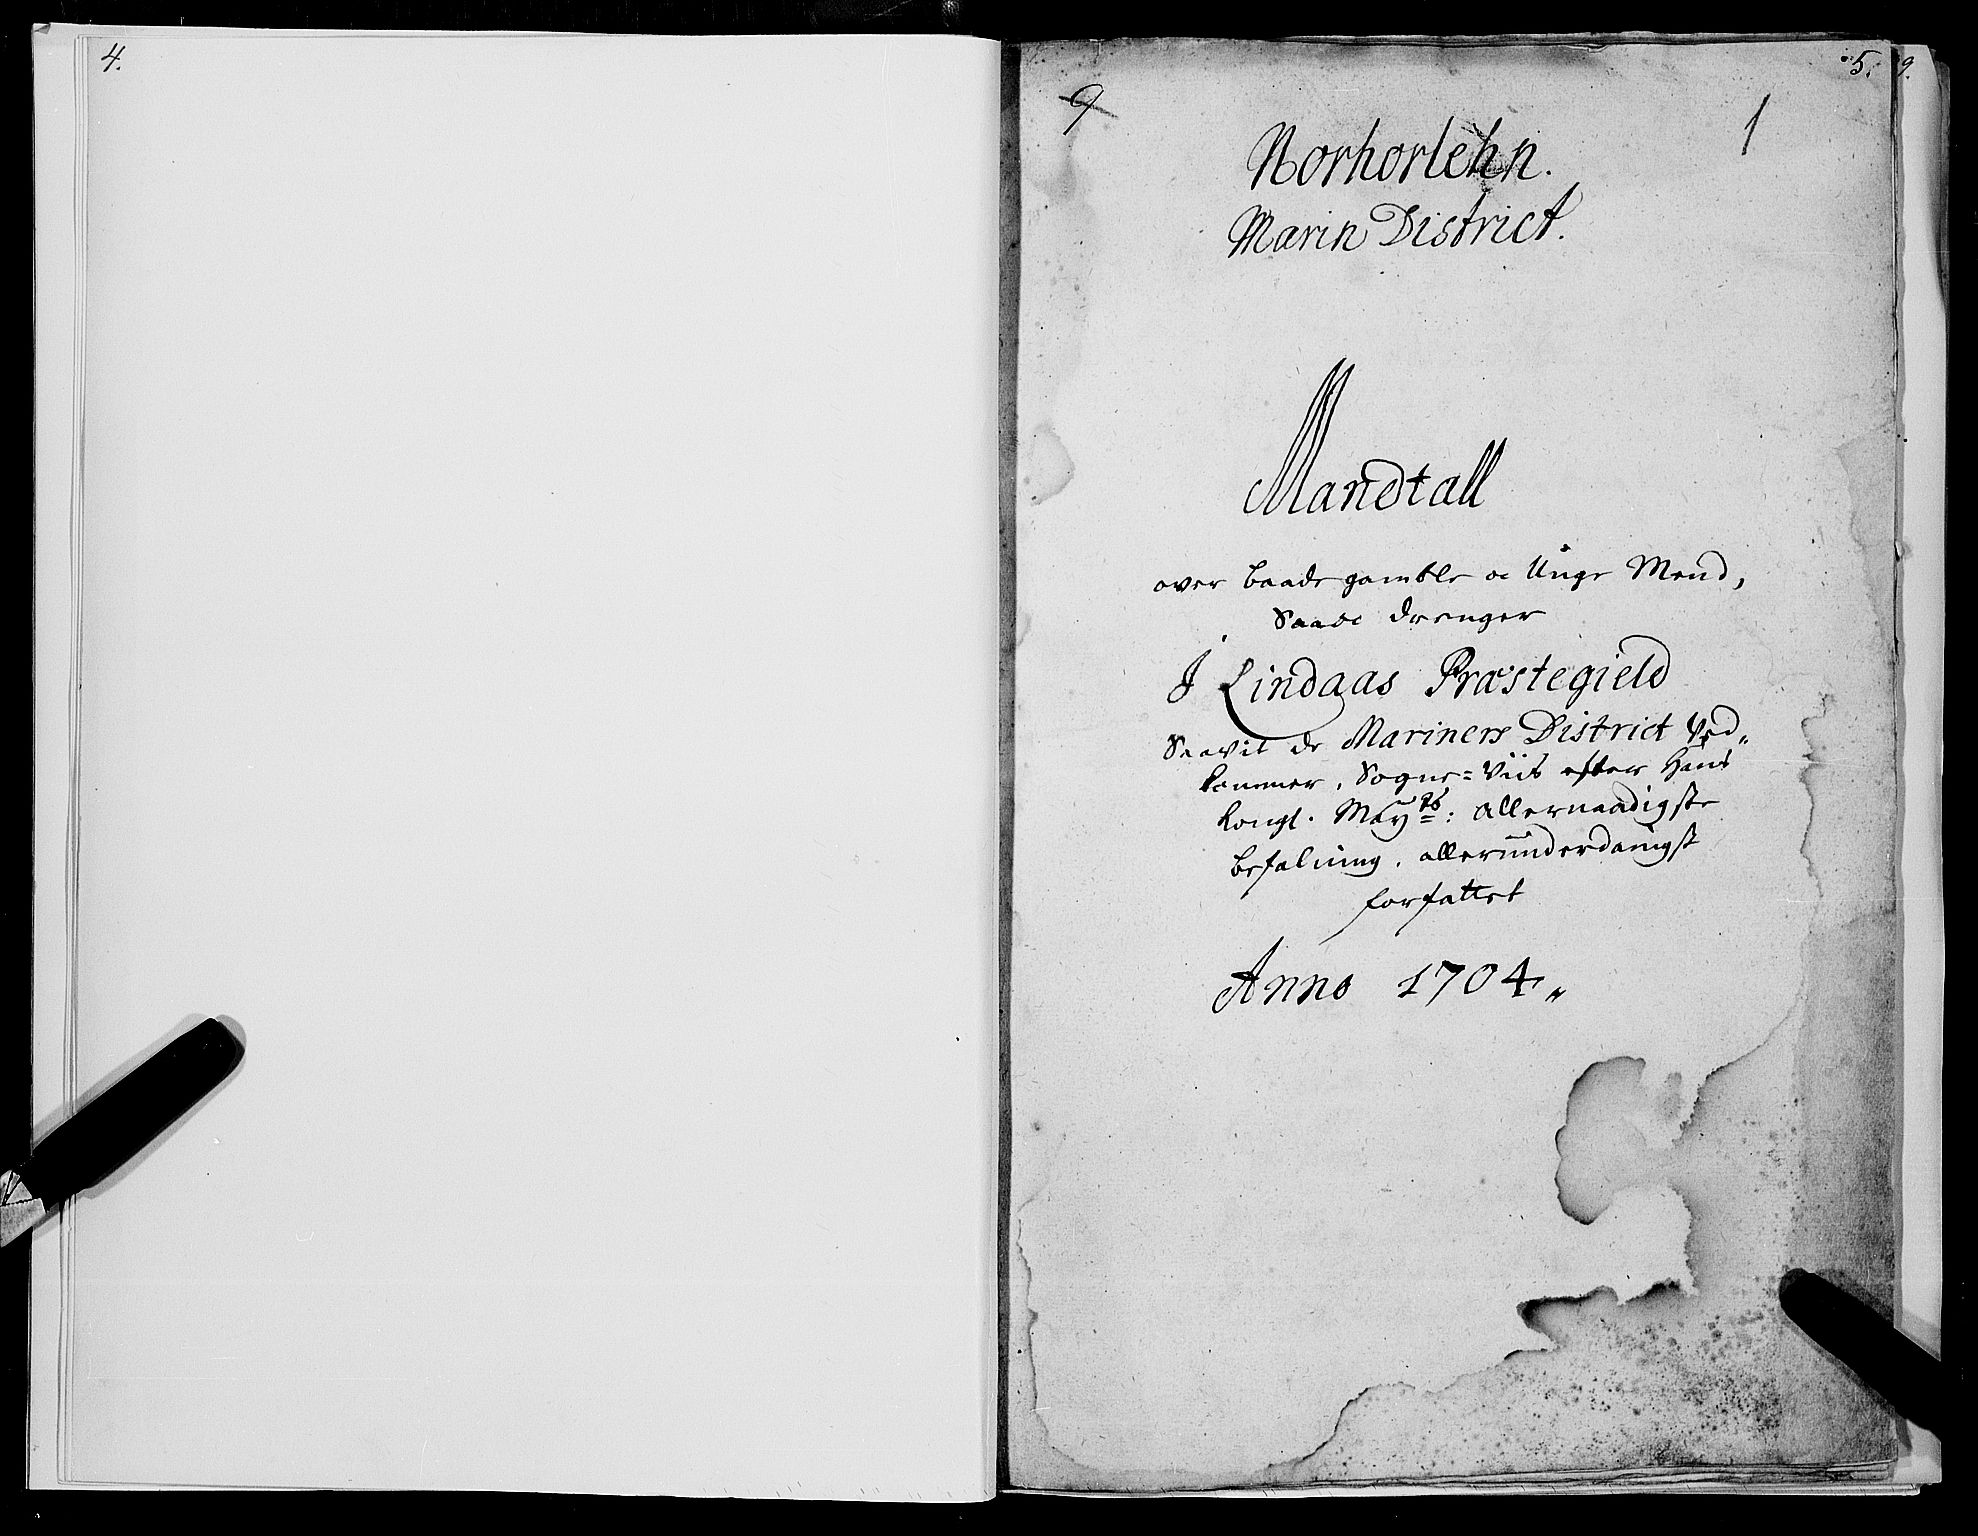 4.
5. 9.
9
1
Norhorlehn.
Marin District.
Mandtall
over baade gamble oc Unge Mend,
Saa oc drenger
J Lindaas Præstegield
Saavit de Mariners District Ved„
kommer, Sogne=Viis efter Hans
Kongl. May ts: allernaadigste
befalning, allerunderdanigst
forfattet
Anno 1704„